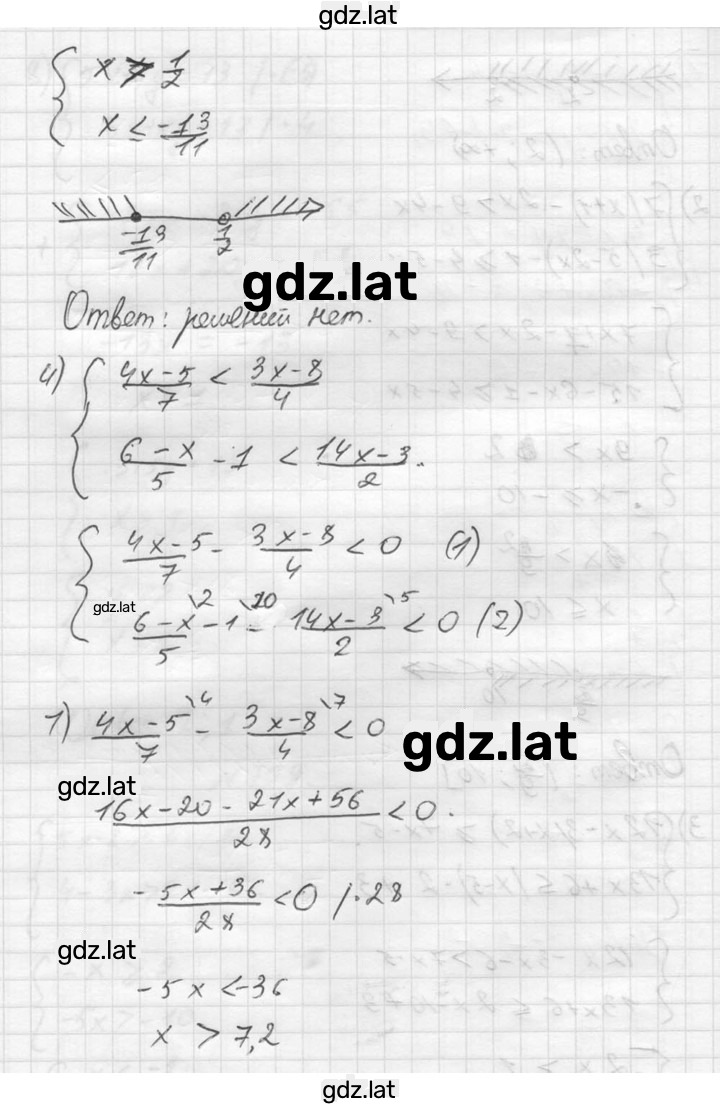 gdz.lat
{ x > 1/2
x ≤ -13/11
-13/11 1/2
gdz.lat
Ответ: решений нет.
4) { (4x-5)/7 < (3x-8)/4
(6-x)/5 - 1 < (14x-3)/2.
{ (4x-5)/7 - (3x-8)/4 < 0 (1)
gdz.lat
(6-x)/5 \2 - 1 \10 - (14x-3)/2 \5 < 0 (2)
1) (4x-5)/7 \4 - (3x-8)/4 \7 < 0
gdz.lat
gdz.lat
(16x-20-21x+56)/28 < 0.
(-5x+36)/28 < 0 /·28
gdz.lat
-5x < -36
x > 7,2
gdz.lat